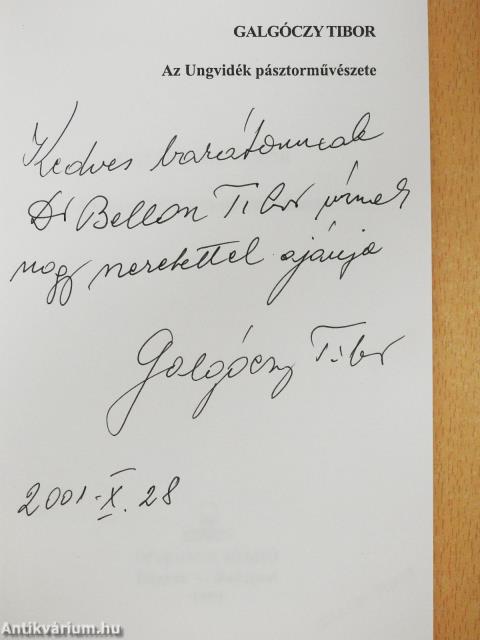 GALGÓCZY TIBOR
Az Ungvidék pásztorművészete
Kedves barátomnak
Dr Bellon Tibor úrnak
nagy szeretettel ajánlja
Galgóczy Tibor
2001-X. 28
Antikvárium.hu